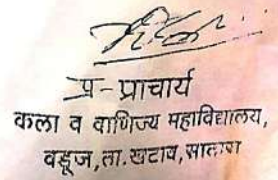 प्र-प्राचार्य
कला व वाणिज्य महाविद्यालय,
वडूज,ता.खटाव,सातारा